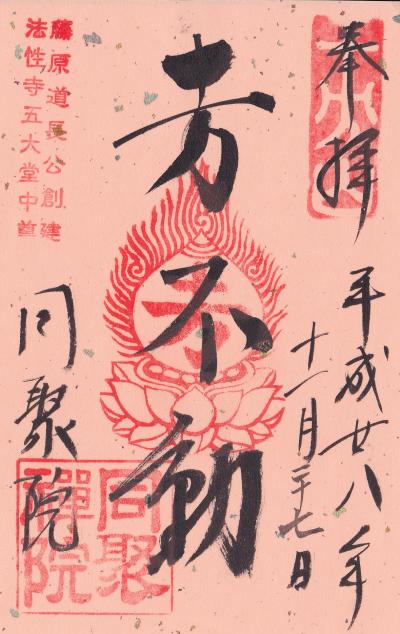 奉拝
平成廿八年
十一月二十七日
十不動
藤原道長公創建
法性寺五大堂中尊
同聚院
同聚
禅院